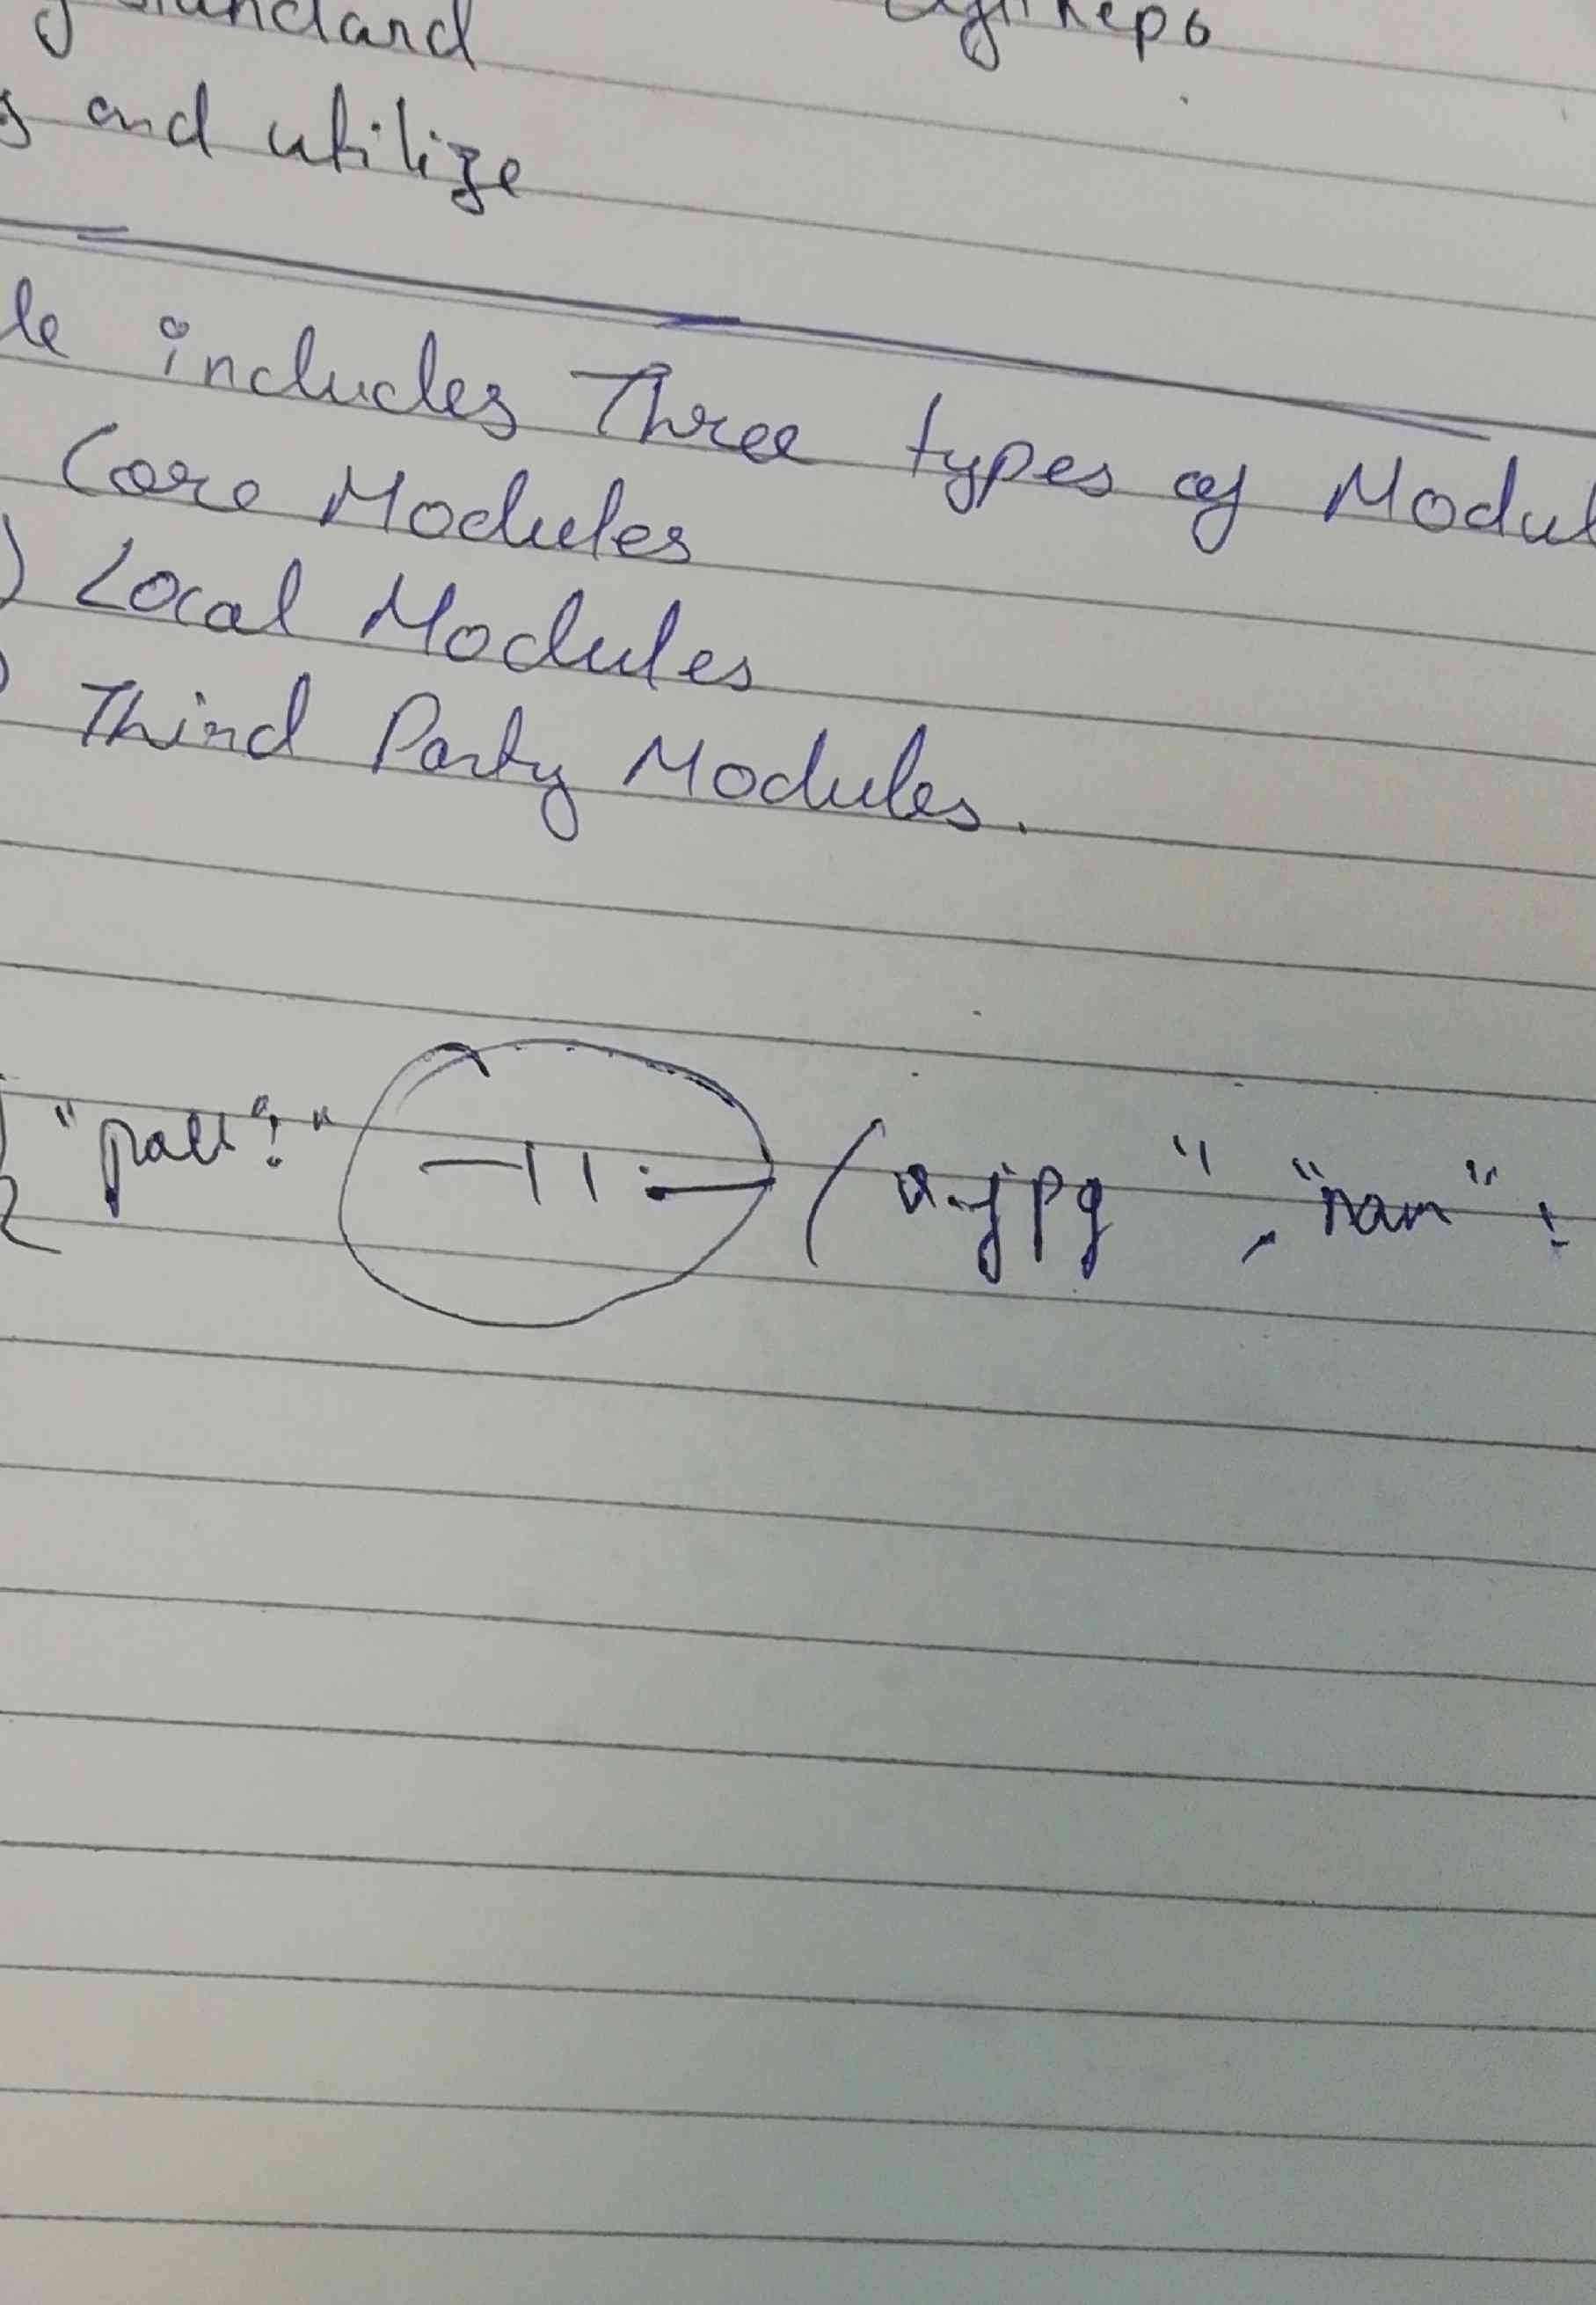 standard
and utilize
le includes Three types of Modul
Core Modules
) Local Modules
) Third Party Modules.
"path": " (x.jpg", "nam":